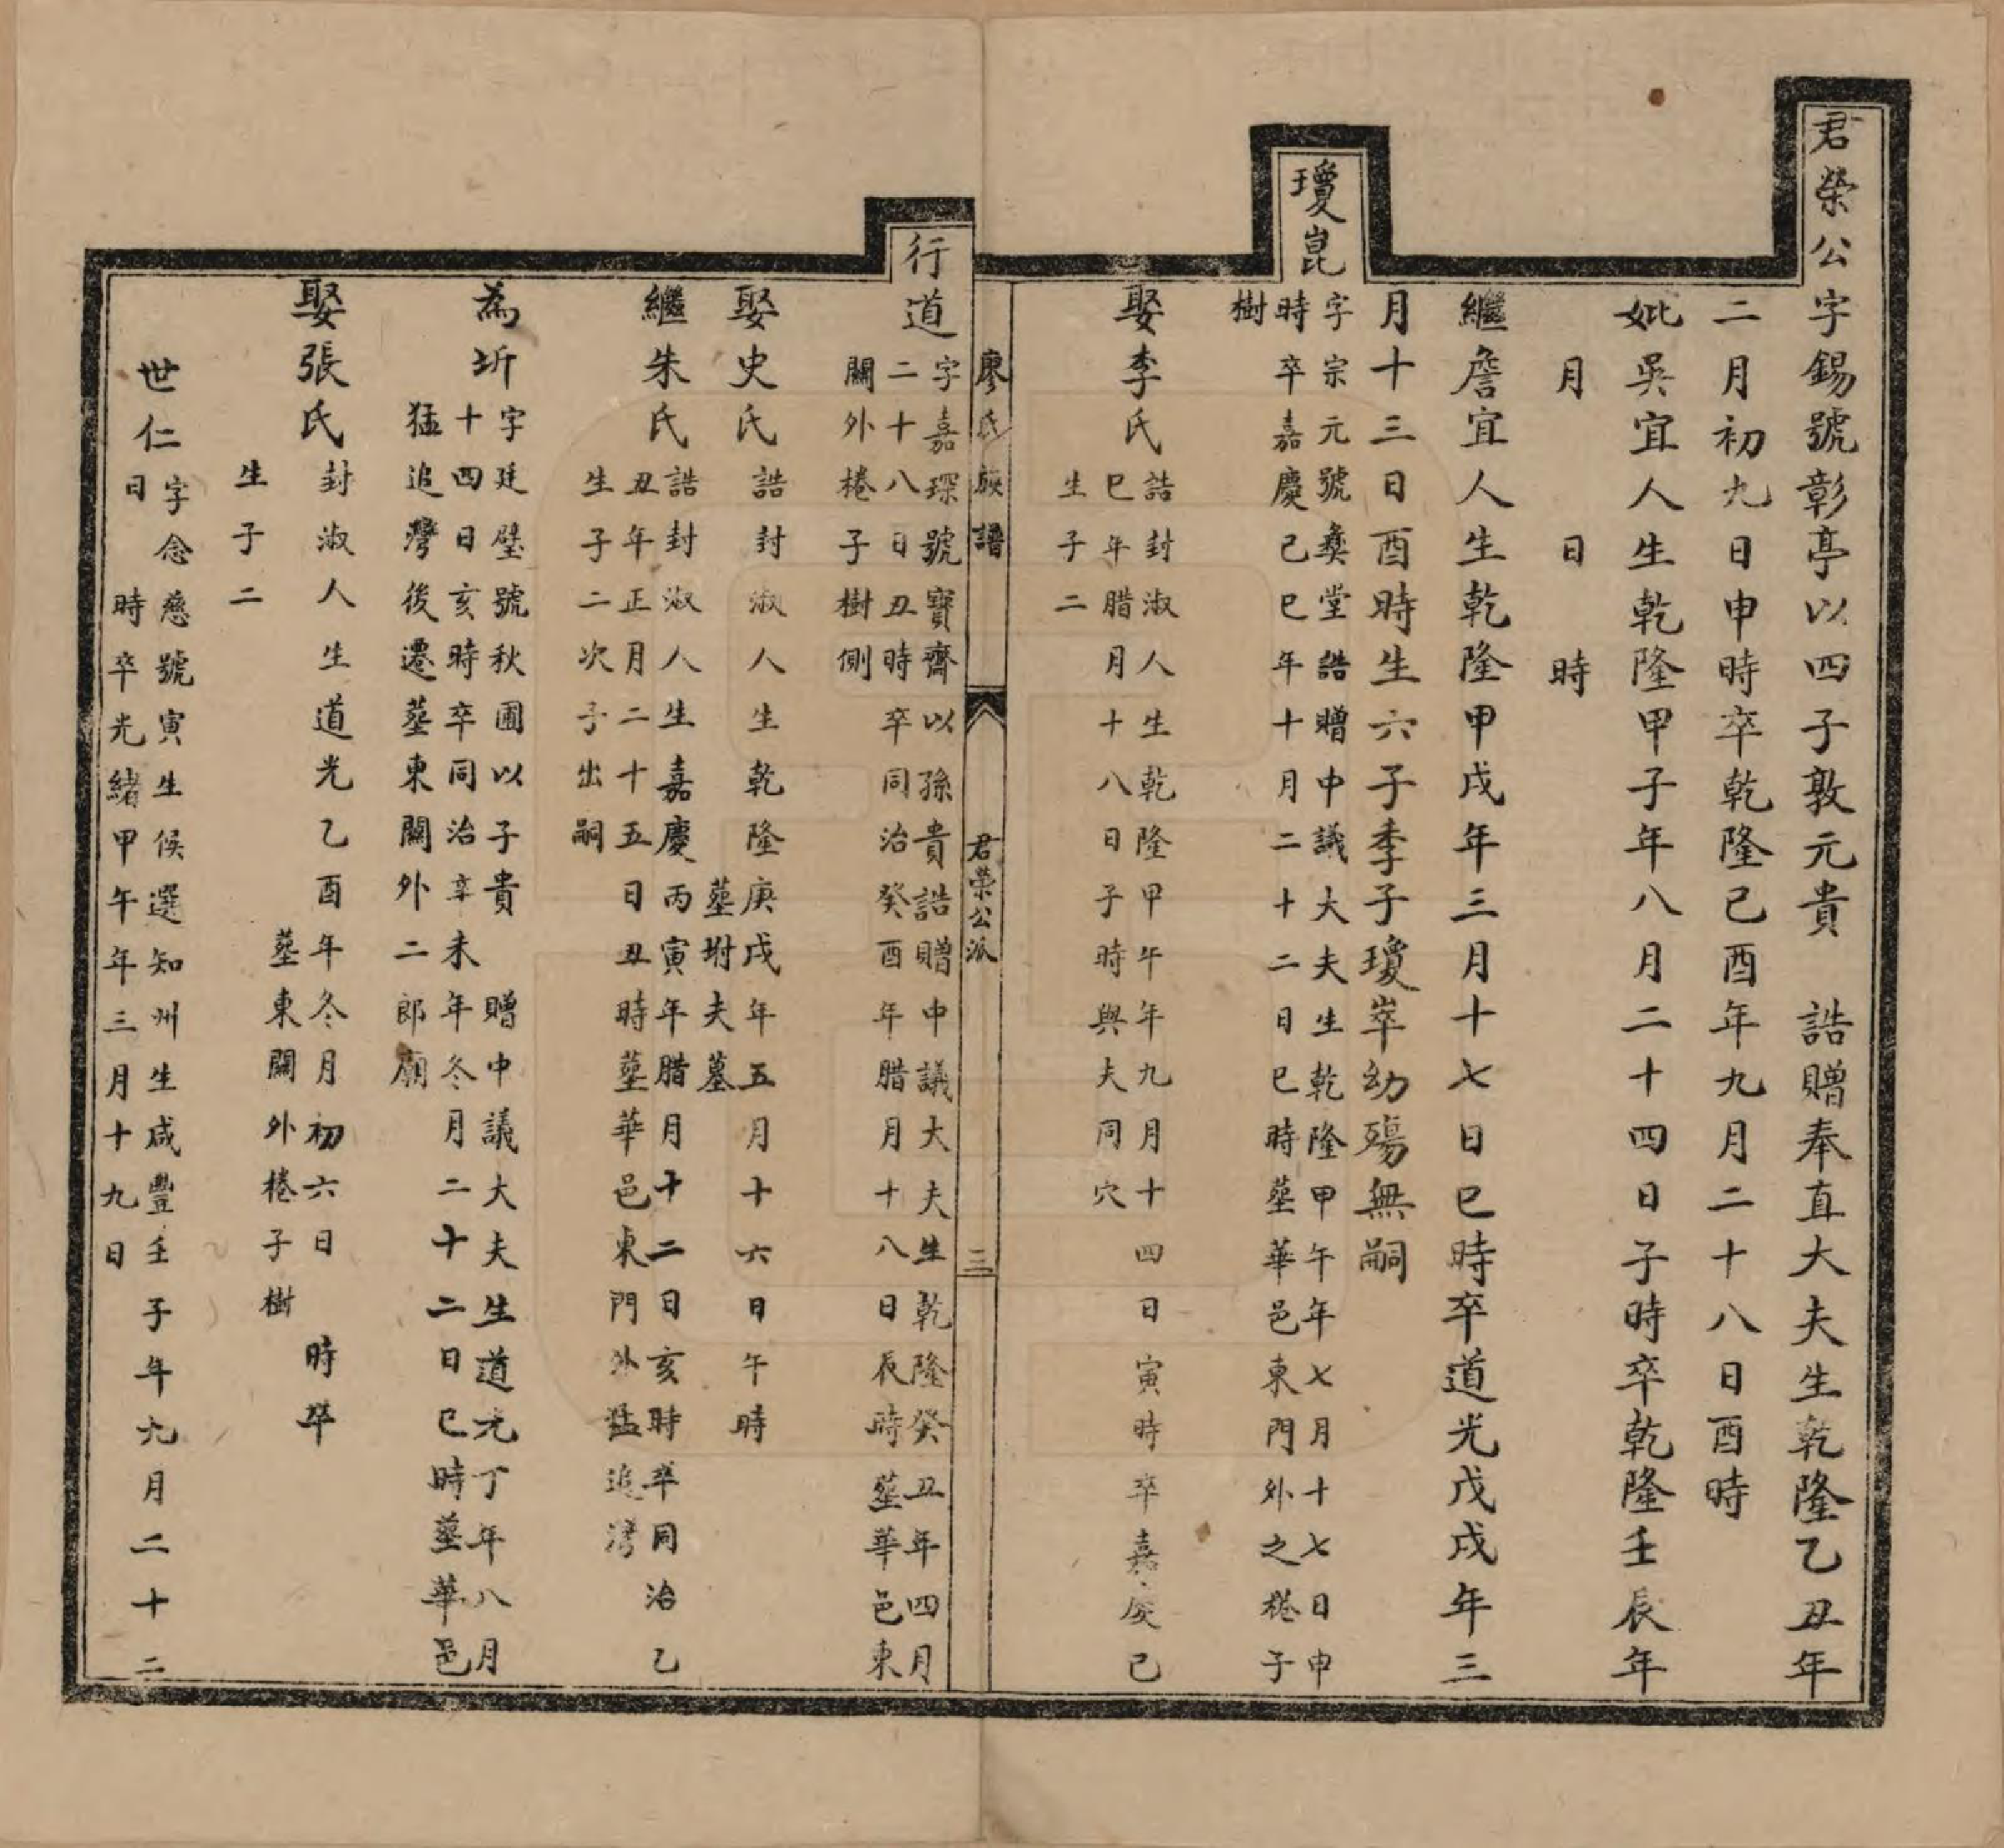 君榮公字錫號彰亭以四子敦元貴　誥贈奉直大夫生乾隆乙丑年
二月初九日申時卒乾隆己酉年九月二十八日酉時
妣吳宜人生乾隆甲子年八月二十四日子時卒乾隆壬辰年
月　　日　　時
繼詹宜人生乾隆甲戌年三月十七日巳時卒道光戊戌年三
月十三日酉時生六子季子瓊崒幼殤無嗣
瓊崑
字宗元號彝堂誥贈中議大夫生乾隆甲午年七月十七日申
時卒嘉慶己巳年十月二十二日巳時塟華邑東門外之棬子
樹
娶李氏
誥封淑人生乾隆甲午年九月十四日寅時卒嘉慶己
巳年腊月十八日子時與夫同穴
生子二
廖氏族譜　君榮公派　三
行道
字嘉琛號寶齋以孫貴誥贈中議大夫生乾隆癸丑年四月
二十八日丑時卒同治癸酉年腊月十八日辰時塟華邑東
關外棬子樹側
娶史氏
誥封淑人生乾隆庚戌年五月十六日午時
塟坿夫墓
繼朱氏
誥封淑人生嘉慶丙寅年腊月十二日亥時卒同治乙
丑年正月二十五日丑時塟華邑東門外猛追灣
生子二次子出嗣
為圻
字廷璧號秋圃以子貴　贈中議大夫生道光丁年八月
十四日亥時卒同治辛未年冬月二十二日巳時塟華邑
猛追灣後遷塟東關外二郎廟
娶張氏
封淑人生道光乙酉年冬月初六日　時卒
塟東關外棬子樹
生子二
世仁
字念慈號寅生候選知州生咸豐壬子年九月二十二
日　時卒光緒甲午年三月十九日